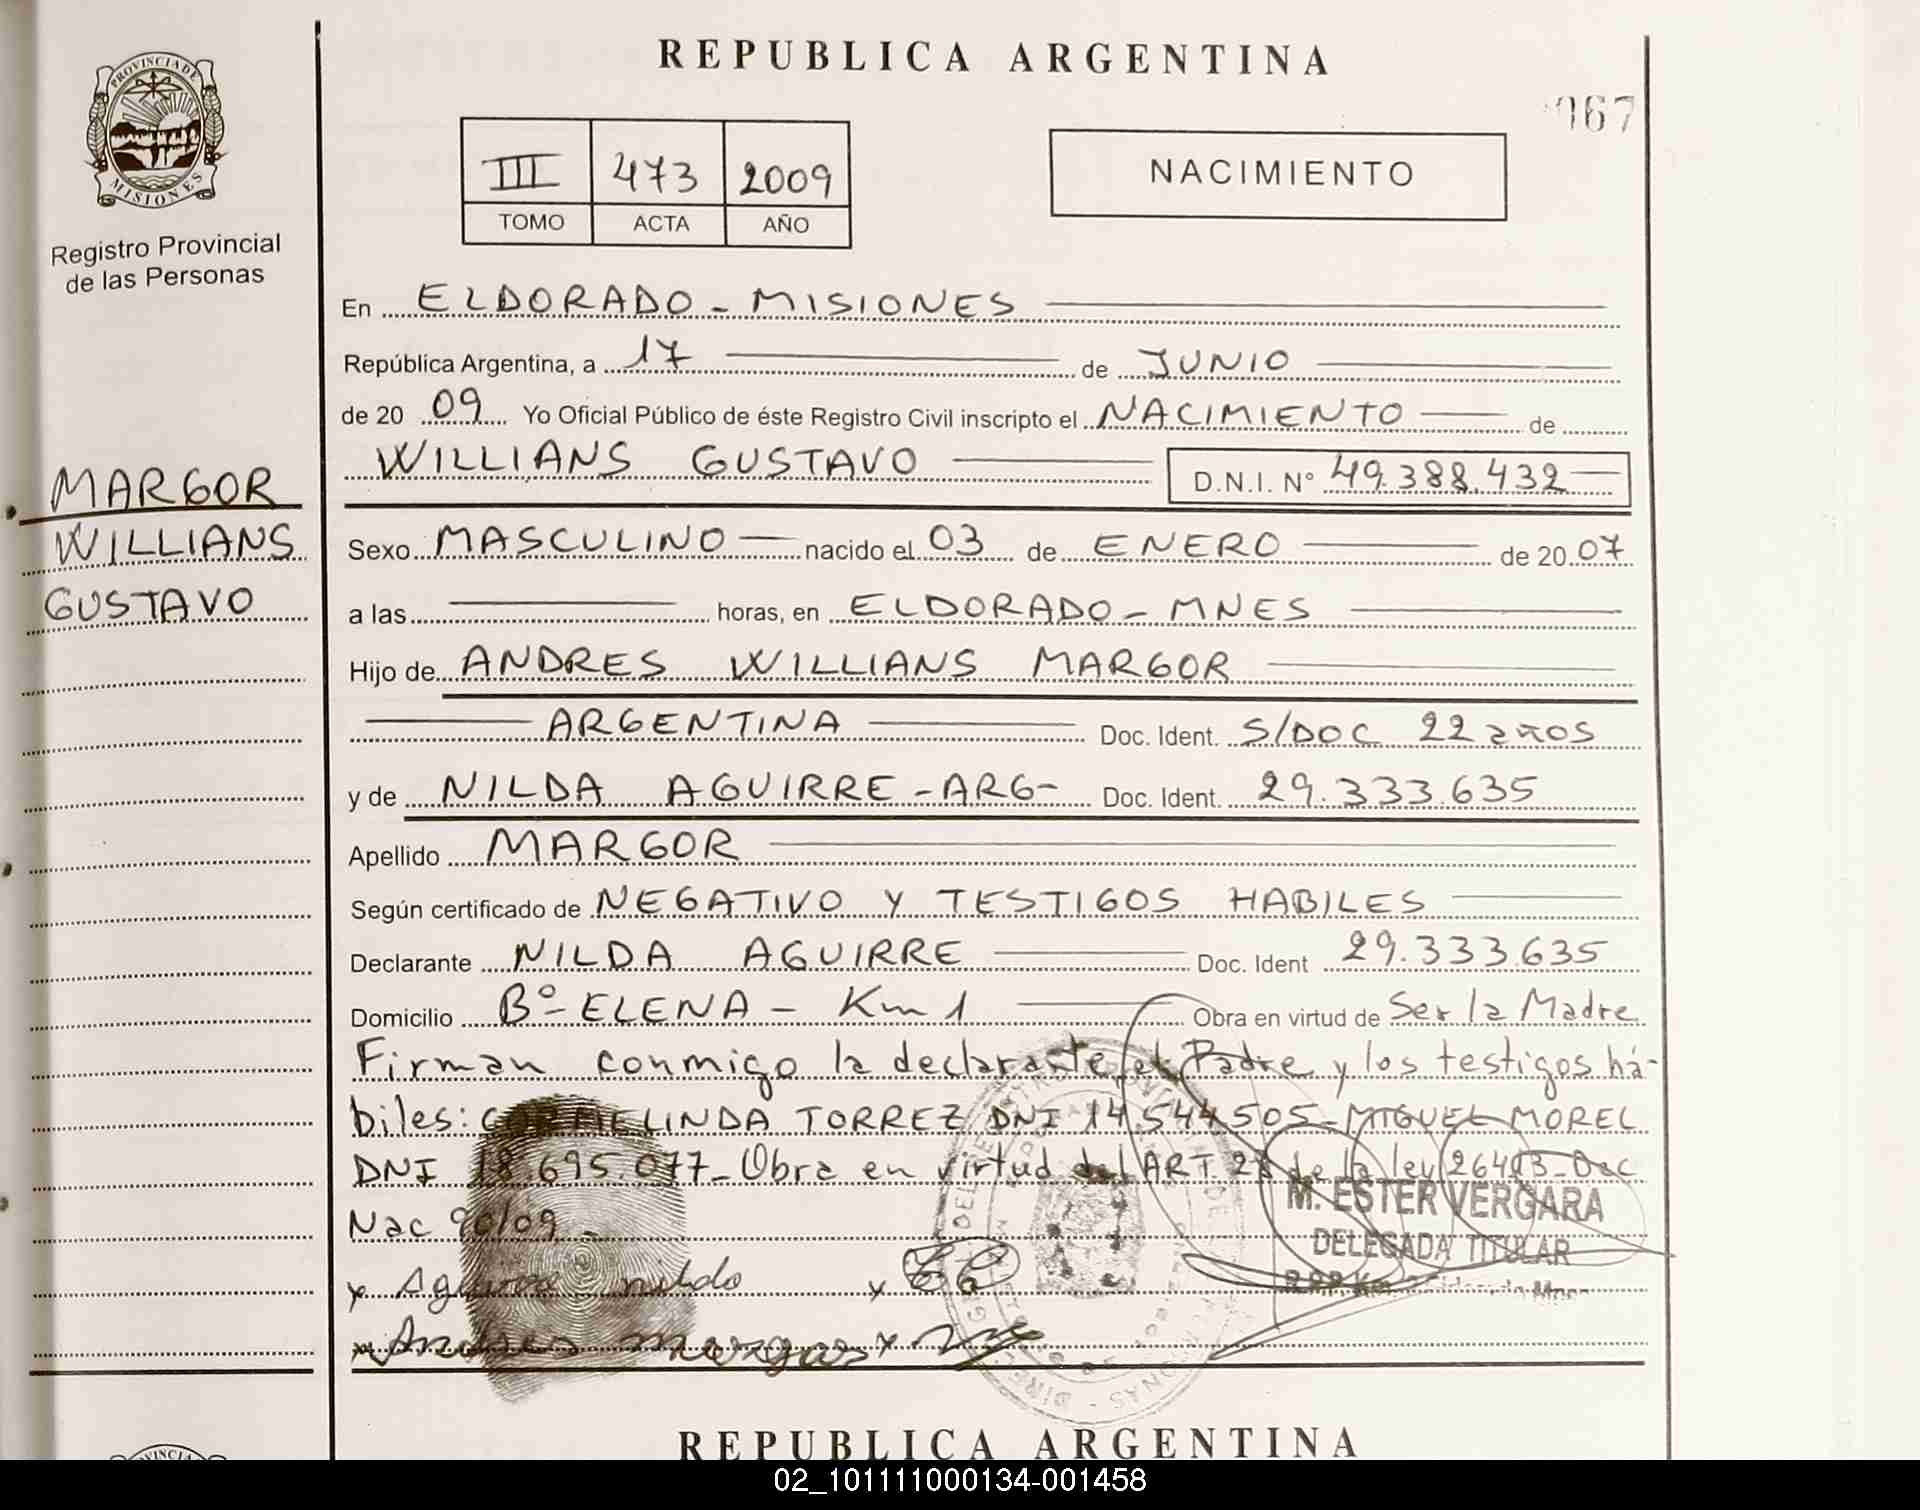 REPUBLICA ARGENTINA
067
PROVINCIA DE
MISIONES
Registro Provincial
de las Personas
III 473 2009
TOMO ACTA AÑO
NACIMIENTO
MARGOR
WILLIANS
GUSTAVO
En ELDORADO - MISIONES
República Argentina, a 17 de JUNIO
de 20 09 Yo Oficial Público de éste Registro Civil inscripto el NACIMIENTO de
WILLIANS GUSTAVO D.N.I. N° 49.388.432
Sexo MASCULINO nacido el 03 de ENERO de 20 07
a las horas, en ELDORADO - MNES
Hijo de ANDRES WILLIANS MARGOR
ARGENTINA Doc. Ident. S/DOC 22 años
y de NILDA AGUIRRE - ARG- Doc. Ident. 29.333.635
Apellido MARGOR
Según certificado de NEGATIVO Y TESTIGOS HABILES
Declarante NILDA AGUIRRE Doc. Ident 29.333.635
Domicilio Bº ELENA - Km 1 Obra en virtud de Ser la Madre
Firman conmigo la declarante, el Padre y los testigos há-
biles: CARMELINDA TORREZ DNI 14.544.505 - MIGUEL MOREL
DNI 18.695.077 - Obra en virtud del ART. 28 de la ley 26413 - Dec
Nac 90/09 -
M. ESTER VERGARA
DELEGADA TITULAR
x Aguirre nilda x
x Andres margor x
REPUBLICA ARGENTINA
02_101111000134-001458